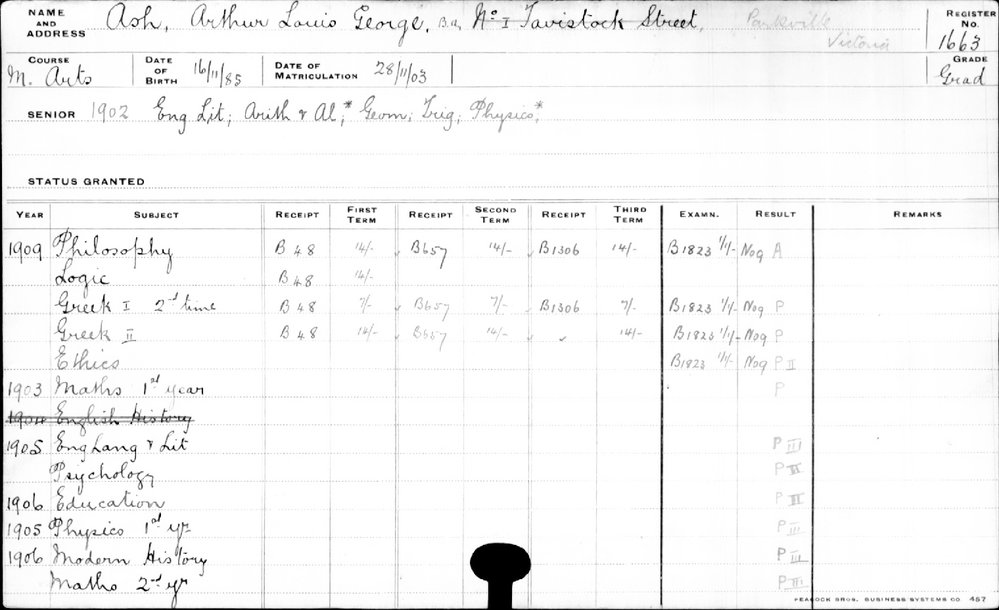 NAME AND ADDRESS Ash, Arthur Louis George, B.a, No I Tavistock Street, Parkville Victoria REGISTER No. 1663
COURSE M. Arts DATE OF BIRTH 16/11/85 DATE OF MATRICULATION 28/11/03 GRADE Grad
SENIOR 1902 Eng Lit; Arith & Al;* Geom; Trig; Physics;*
STATUS GRANTED
YEAR SUBJECT RECEIPT FIRST TERM RECEIPT SECOND TERM RECEIPT THIRD TERM EXAMN. RESULT REMARKS
1909 Philosophy B 48 14/- B657 14/- B1306 14/- B1823 1/1/- Nog A
Logic B 48 14/-
Greek I 2nd time B 48 7/- B657 7/- B1306 7/- B1823 1/1/- Nog P
Greek II B 48 14/- B657 14/- 14/- B1823 1/1/- Nog P
Ethics B1823 1/1/- Nog P II
1903 Maths 1st year P
1904 English History
1905 Eng Lang & Lit P III
Psychology P III
1906 Education P III
1905 Physics 1st yr P III
1906 Modern History P III
Maths 2nd yr P III
PEACOCK BROS. BUSINESS SYSTEMS CO. 457